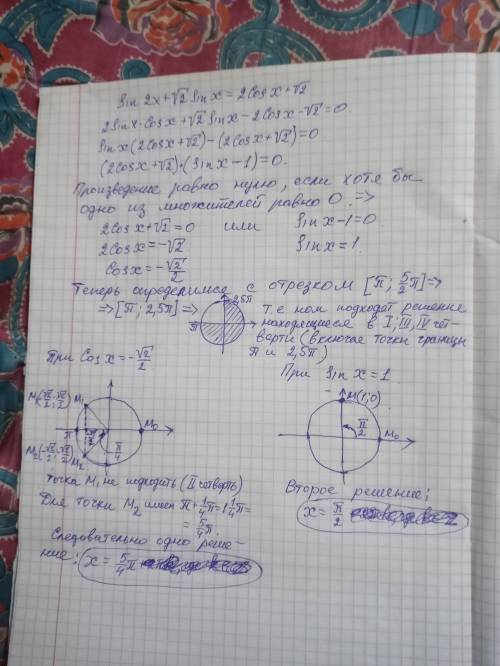 sin 2x + √2 sin x = 2cos x + √2
2sin x · cos x + √2 sin x - 2cos x - √2 = 0
sin x (2cos x + √2) - (2cos x + √2) = 0
(2cos x + √2) · (sin x - 1) = 0.
Произведение равно нулю, если хотя бы
одно из множителей равно 0. =>
2cos x + √2 = 0 или sin x - 1 = 0
2cos x = -√2 sin x = 1.
cos x = -√2/2
Теперь определимся с отрезком [π; 5/2 π] =>
=> [π; 2,5π] => 2,5π π
т.е нам подходят решения
находящиеся в I; III, IV чет-
верти (включая точки границы
π и 2,5π)
При cos x = -√2/2
M₁ M₀
π π/4
M₂
точка M₁ не подходить (II четверть)
Для точки M₂ имеем π + 1/4 π = 1 1/4 π =
= 5/4 π
Следовательно одно реше-
ние: x = 5/4 π
При sin x = 1
M(1;0)
π/2 M₀
Второе решение:
x = π/2